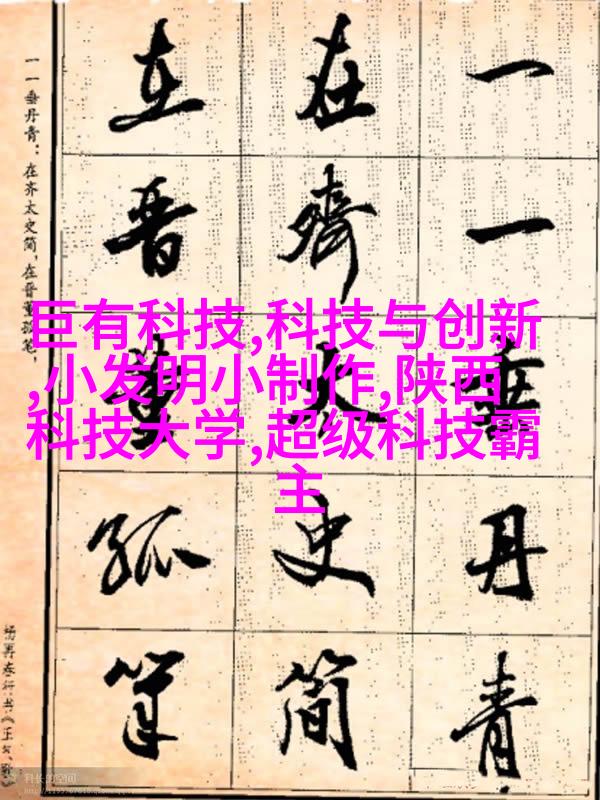 一一垂丹青
在齊太史简
在晋董狐筆
一一垂丹青:在齐太史简,在晋董狐笔,
杨再春行书《正气歌》
巨有科技,科技与创新
,小发明小制作,陕西
科技大学,超级科技霸
主
科长的空间